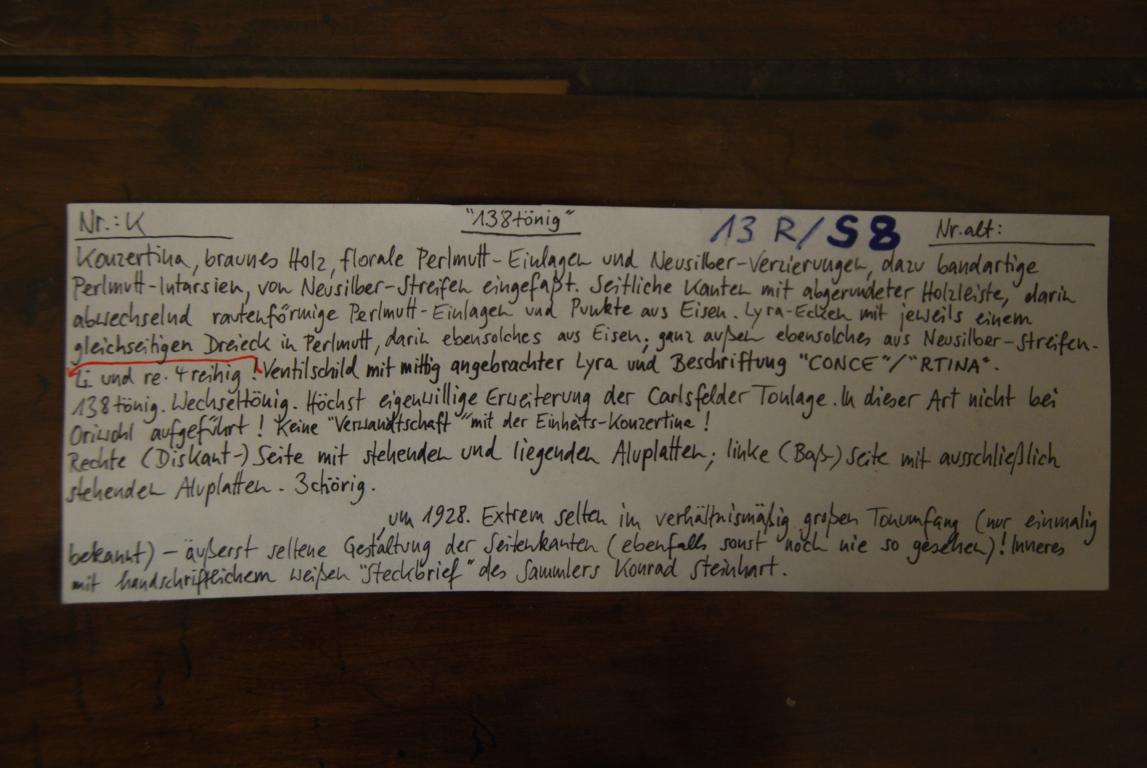 Nr.: K "138tönig" 13 R/S8 Nr.alt:
Konzertina, braunes Holz, florale Perlmutt-Einlagen und Neusilber-Verzierungen, dazu bandartige
Perlmutt-Intarsien, von Neusilber-Streifen eingefaßt. Seitliche Kanten mit abgerundeter Holzleiste, darin
abwechselnd rautenförmige Perlmutt-Einlagen und Punkte aus Eisen. Lyra-Ecken mit jeweils einem
gleichseitigen Dreieck in Perlmutt, darin ebensolches aus Eisen; ganz außen ebensolches aus Neusilber-Streifen.
Li und re. 4reihig! Ventilschild mit mittig angebrachter Lyra und Beschriftung "CONCE"/"RTINA".
138tönig. Wechseltönig. Höchst eigenwillige Erweiterung der Carlsfelder Tonlage. In dieser Art nicht bei
Oriwohl aufgeführt! Keine "Verwandtschaft" mit der Einheits-Konzertina!
Rechte (Diskant-) Seite mit stehenden und liegenden Aluplatten; linke (Baß-) Seite mit ausschließlich
stehenden Aluplatten. 3chörig.
, um 1928. Extrem selten im verhältnismäßig großen Tonumfang (nur einmalig
bekannt) – äußerst seltene Gestaltung der Seitenkanten (ebenfalls sonst noch nie so gesehen)! Inneres
mit handschriftlichem weißen "Steckbrief" des Sammlers Konrad Steinhart.